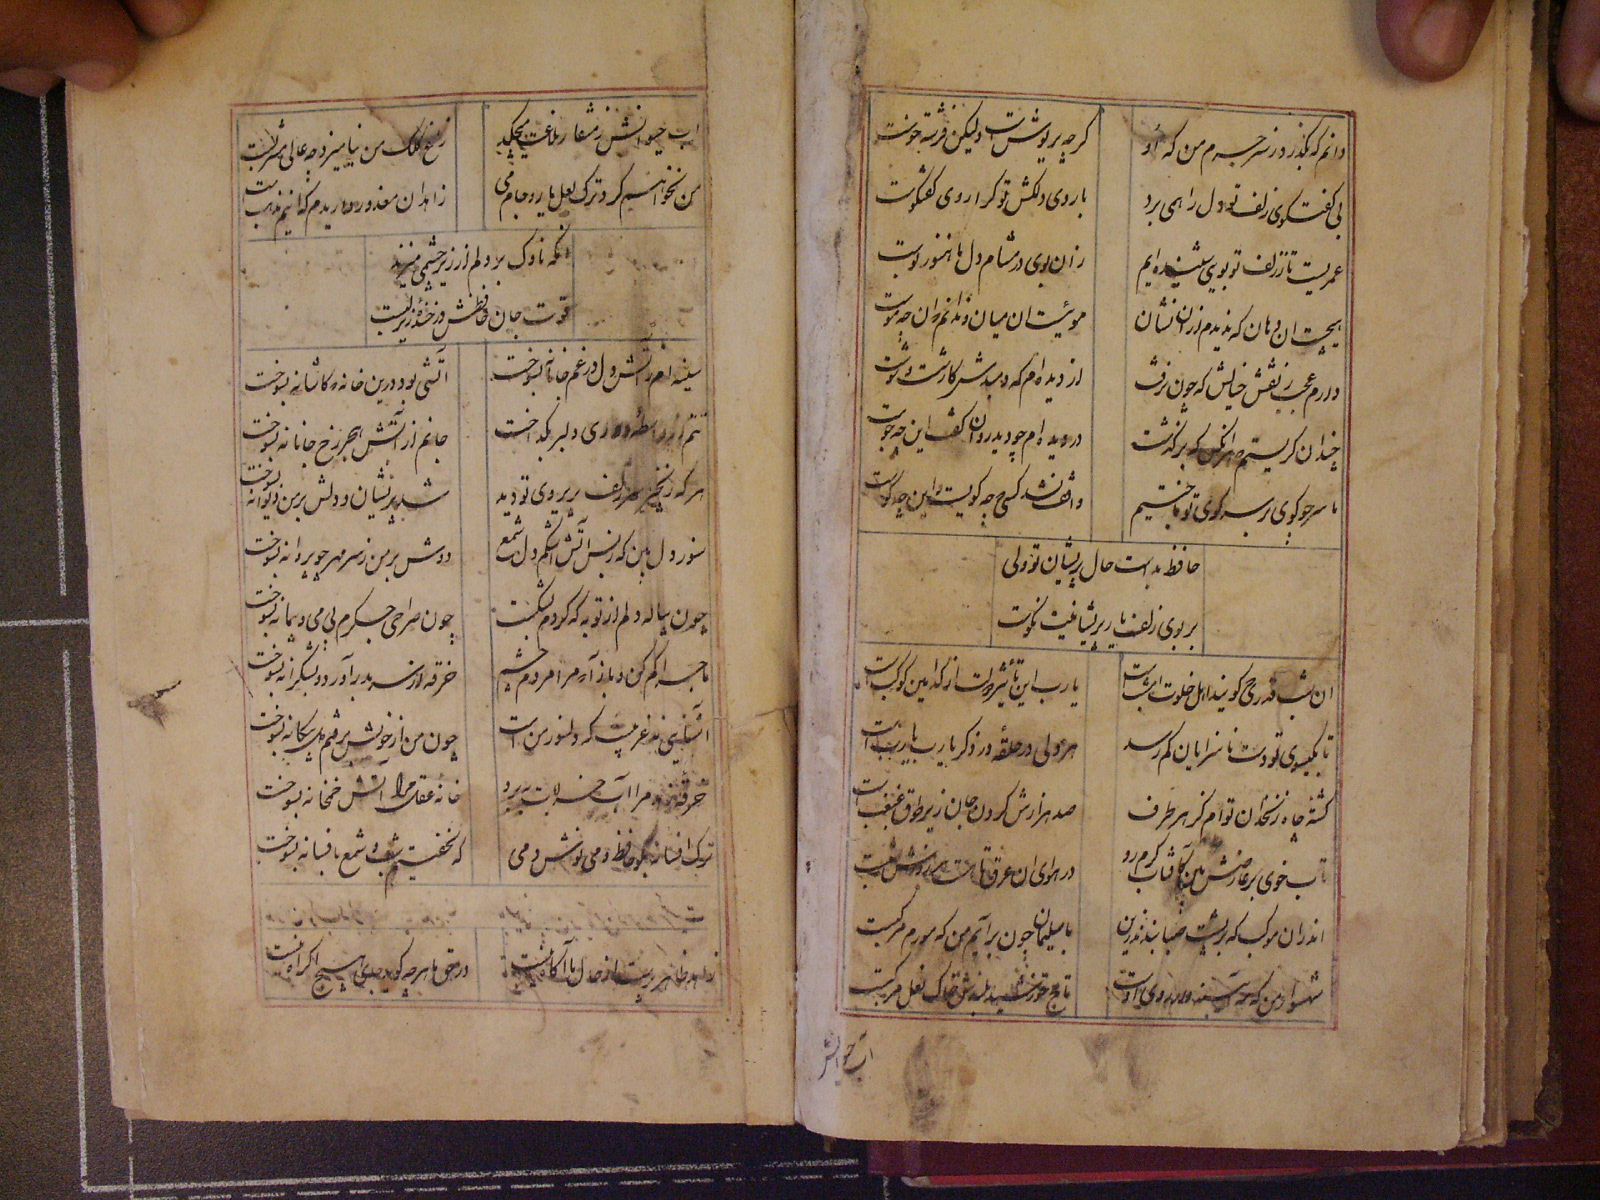 دانم که بگذرد ز سر جرم من که او گرچه پریوش است ولیکن فرشته خوست
بی گفت و گوی زلف تو دل را همی برد با روی دلکش تو کرا روی گفتگوست
عمریست تا ز زلف تو بویی شنیده ایم زان بوی در مشام دل ما هنوز بوست
هیچست ان دهان که ندیدم ازو نشان موئیست ان میان و ندانم که ان چه موست
دارم عجب ز نقش خیالش که چون نرفت از دیده ام که دمبدمش کار شست و شوست
چندان گریستیم که هر کس که بر گذشت در دیده ام چو دید روان گفت این چه جوست
ما سر چو گوی بر سر کوی تو باختیم واقف نشد کسی که چه کویست و این چه گوست
حافظ بدست حال پریشان تو ولی
بر بوی زلف یار پریشانیت نکوست
ان شب قدری که گویند اهل خلوت امشبست یارب این تأثیر دولت از کدامین کوکبست
تا بگیسوی تو دست ناسزایان کم رسد هر دلی در حلقه در ذکر یارب یاربست
کشته چاه زنخدان توام کز هر طرف صد هزارش گردن جان زیر طوق غبغبست
تاب خوی بر عارضش بین کآفتاب گرم رو در هوای ان عرق تا هست هر روزش تبست
اندران موکب که بر پشت صبا بندند زین با سلیمان چون برانم من که مورم مرکبست
شهسوار من که مه آیینه دار روی اوست تاج خورشید بلندش خاک نعل مرکبست
آب حیوانش
اب حیوانش ز منقار بلاغت میچکد زاغ کلک من بنامیزد چه عالی مشربست
من نخواهم کرد ترک لعل یار و جام می زاهدان معذور داریدم که اینم مذهبست
انکه ناوک بر دلم از زیر چشمی میزند
قوت جان حافظش در خنده زیر لبست
سینه ام ز آتش دل در غم جانانه بسوخت آتشی بود درین خانه که کاشانه بسوخت
تنم از واسطه دوری دلبر بگداخت جانم از آتش هجر رخ جانانه بسوخت
هر که زنجیر سر زلف پریروی تو دید شد پریشان و دلش بر من دیوانه بسوخت
سوز دل بین که ز بس آتش اشکم دل شمع دوش بر من ز سر مهر چو پروانه بسوخت
چون پیاله دلم از توبه که کردم بشکست چون صراحی جگرم بی می و پیمانه بسوخت
ماجرا کم کن و باز آ که مرا مردم چشم خرقه از سر بدر آورد و بشکرانه بسوخت
آشنایی نه غریبست که دلسوز من است چون من از خویش برفتم دل بیگانه بسوخت
خرقه زهد مرا آب خرابات ببرد خانه عقل مرا آتش خمخانه بسوخت
ترک افسانه بگو حافظ و می نوش دمی که نخفتیم شب و شمع بافسانه بسوخت
زاهد ظاهر پرست از حال ما آگاه نیست در حق ما هر چه گوید جای هیچ اکراه نیست